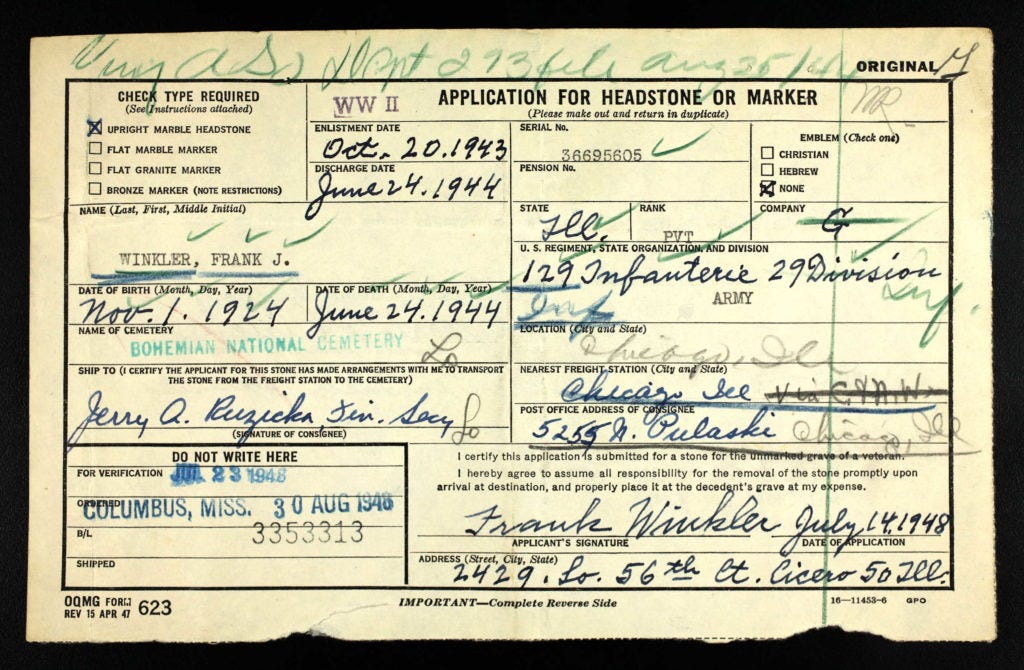 Dept 293 file Aug 25/44
ORIGINAL
CHECK TYPE REQUIRED
(See Instructions attached)
UPRIGHT MARBLE HEADSTONE
FLAT MARBLE MARKER
FLAT GRANITE MARKER
BRONZE MARKER (NOTE RESTRICTIONS)
WW II
APPLICATION FOR HEADSTONE OR MARKER
(Please make out and return in duplicate)
MR
ENLISTMENT DATE
Oct. 20. 1943
DISCHARGE DATE
June 24. 1944
SERIAL No.
36695605
PENSION No.
EMBLEM (Check one)
CHRISTIAN
HEBREW
NONE
NAME (Last, First, Middle Initial)
WINKLER, FRANK J.
STATE
Ill.
RANK
PVT
COMPANY
G
U. S. REGIMENT, STATE ORGANIZATION, AND DIVISION
129 Infanterie 29 Division
Inf
ARMY
Inf.
DATE OF BIRTH (Month, Day, Year)
Nov. 1. 1924
DATE OF DEATH (Month, Day, Year)
June 24. 1944
NAME OF CEMETERY
BOHEMIAN NATIONAL CEMETERY
LOCATION (City and State)
Chicago, Ill
SHIP TO (I CERTIFY THE APPLICANT FOR THIS STONE HAS MADE ARRANGEMENTS WITH ME TO TRANSPORT
THE STONE FROM THE FREIGHT STATION TO THE CEMETERY)
Jerry A. Ruzicka Fin. Secy
(SIGNATURE OF CONSIGNEE)
NEAREST FREIGHT STATION (City and State)
Chicago Ill via C & N. W.
POST OFFICE ADDRESS OF CONSIGNEE
5255 N. Pulaski Chicago, Ill
DO NOT WRITE HERE
FOR VERIFICATION
JUL 23 1948
ORDERED
COLUMBUS, MISS. 30 AUG 1948
B/L
3353313
SHIPPED
I certify this application is submitted for a stone for the unmarked grave of a veteran.
I hereby agree to assume all responsibility for the removal of the stone promptly upon
arrival at destination, and properly place it at the decedent's grave at my expense.
Frank Winkler July. 14. 1948
APPLICANT'S SIGNATURE
DATE OF APPLICATION
ADDRESS (Street, City, State)
2429. So. 56th Ct. Cicero 50 Ill.
OQMG FORM 623
REV 15 APR 47
IMPORTANT—Complete Reverse Side
16—11453-6 GPO